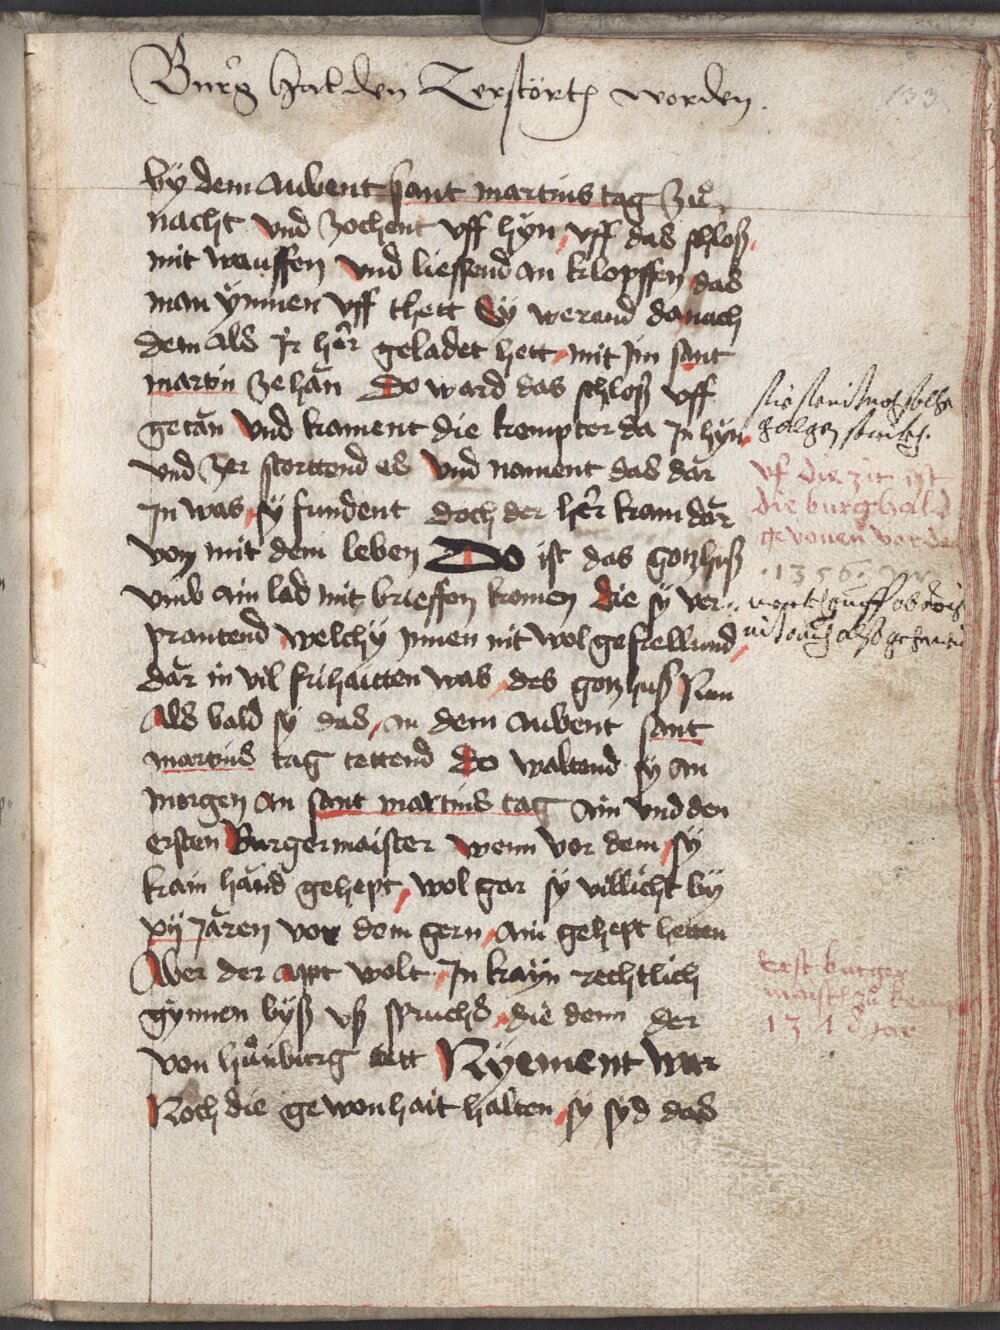 Burg Halden Zerstörth worden.
133
by dem aubent sant martins tag zů
nacht vnd zochent vff hyn vff das schloß
mit wauffen vnd lieffend an klopffen das
man ynnen vff thett Sy werend da nach
dem als Jr her geladet hett mit jm sant
martin ze han Do ward das schloß vff
getan vnd kament die kempter da Jn hyn
vnd zer storttend es vnd nament das dar
Jn was sy fundent doch der her kam dar
von mit dem leben Do ist das gotzhuß
vmb ain lad mit brieffen komen die sy ver
prantend welchy jnnen nit wol gefiellend
dar in vil frihaitten was des gotzhuß Nun
Als bald sy das an dem aubent sant
martins tag tettend Do waltend sy am
morgen an sant martins tag ain vnd den
ersten Burgermaister wenn vor dem sy
kain hand gehept wol gar sy villicht by
xij Jaren vor dem gern ain gehept hetten
Aber der appt wolt Jn kayn rechtlich
gynnen byß vß spruchs die denn der
von hu̇nburg tett Nyement war
Noch die gewonhait halten sy syd das
vf die zit ist
die burghald
gewonen worden
1356
Erst burger
maister zů kempten
Jar